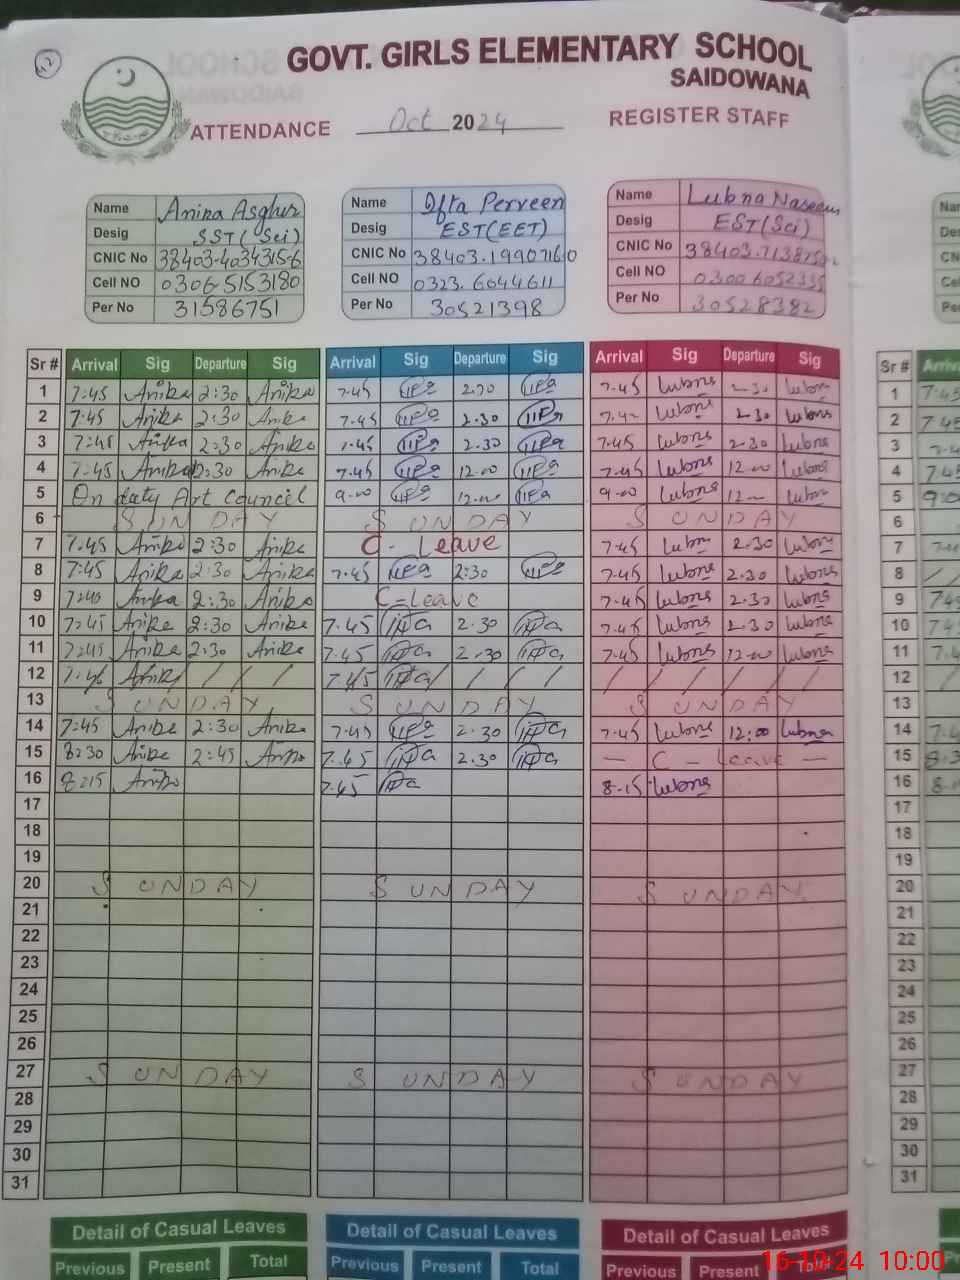 GOVT. GIRLS ELEMENTARY SCHOOL
SAIDOWANA
ATTENDANCE Oct 2024 REGISTER STAFF
Name Anika Asghar
Desig SST (Sci)
CNIC No 38403-4034315-6
Cell NO 0306-5153180
Per No 31586751
Name Ifta Perveen
Desig EST(EET)
CNIC No 38403.1990716.0
Cell NO 0323.6044611
Per No 30521398
Name Lubna Naseem
Desig EST(Sci)
CNIC No
Cell NO 03006052335
Per No 30528382
Sr # Arrival Sig Departure Sig Arrival Sig Departure Sig Arrival Sig Departure Sig Sr #
1 7:45 Anika 2:30 Anika 7.45 2.30 7.45 Lubna 2.30 Lubna 1
2 7:45 Anika 2:30 Anika 7.45 2.30 Lubna 2.30 Lubna 2
3 7:45 Anika 2:30 Anika 7.45 2.30 7.45 Lubna 2.30 Lubna 3
4 7:45 Anika 2:30 Anika 7.45 12.00 7.45 Lubna 12.00 Lubna 4
5 On duty Art Council 9.00 12.00 9.00 Lubna Lubna 5
6 SUNDAY SUNDAY SUNDAY 6
7 7.45 Anika 2:30 Anika C - Leave 7.45 Lubna 2.30 Lubna 7
8 7:45 Anika 2:30 Anika 7.45 2:30 7.45 Lubna 2.30 Lubna 8
9 7:40 Anika 2:30 Anika C-Leave 7.45 Lubna 2.30 Lubna 9
10 7:45 Anika 2:30 Anika 7.45 2.30 7.45 Lubna 2.30 Lubna 10
11 7:45 Anika 2:30 Anika 7.45 2.30 7.45 Lubna 12.00 Lubna 11
12 Anika / / / 7.45 / / / / / / / / / 12
13 SUNDAY SUNDAY SUNDAY 13
14 7:45 Anika 2:30 Anika 7.45 2.30 7.45 Lubna 12:00 Lubna 14
15 8:30 Anika 2:45 Anika 7.45 2.30 — C - Leave — 15
16 8:15 Anika 7.45 8.15 Lubna 16
17 17
18 18
19 19
20 SUNDAY SUNDAY SUNDAY 20
21 21
22 22
23 23
24 24
25 25
26 26
27 SUNDAY SUNDAY SUNDAY 27
28 28
29 29
30 30
31 31
Detail of Casual Leaves Detail of Casual Leaves Detail of Casual Leaves
Previous Present Total Previous Present Total Previous Present Total
16-10-24 10:00